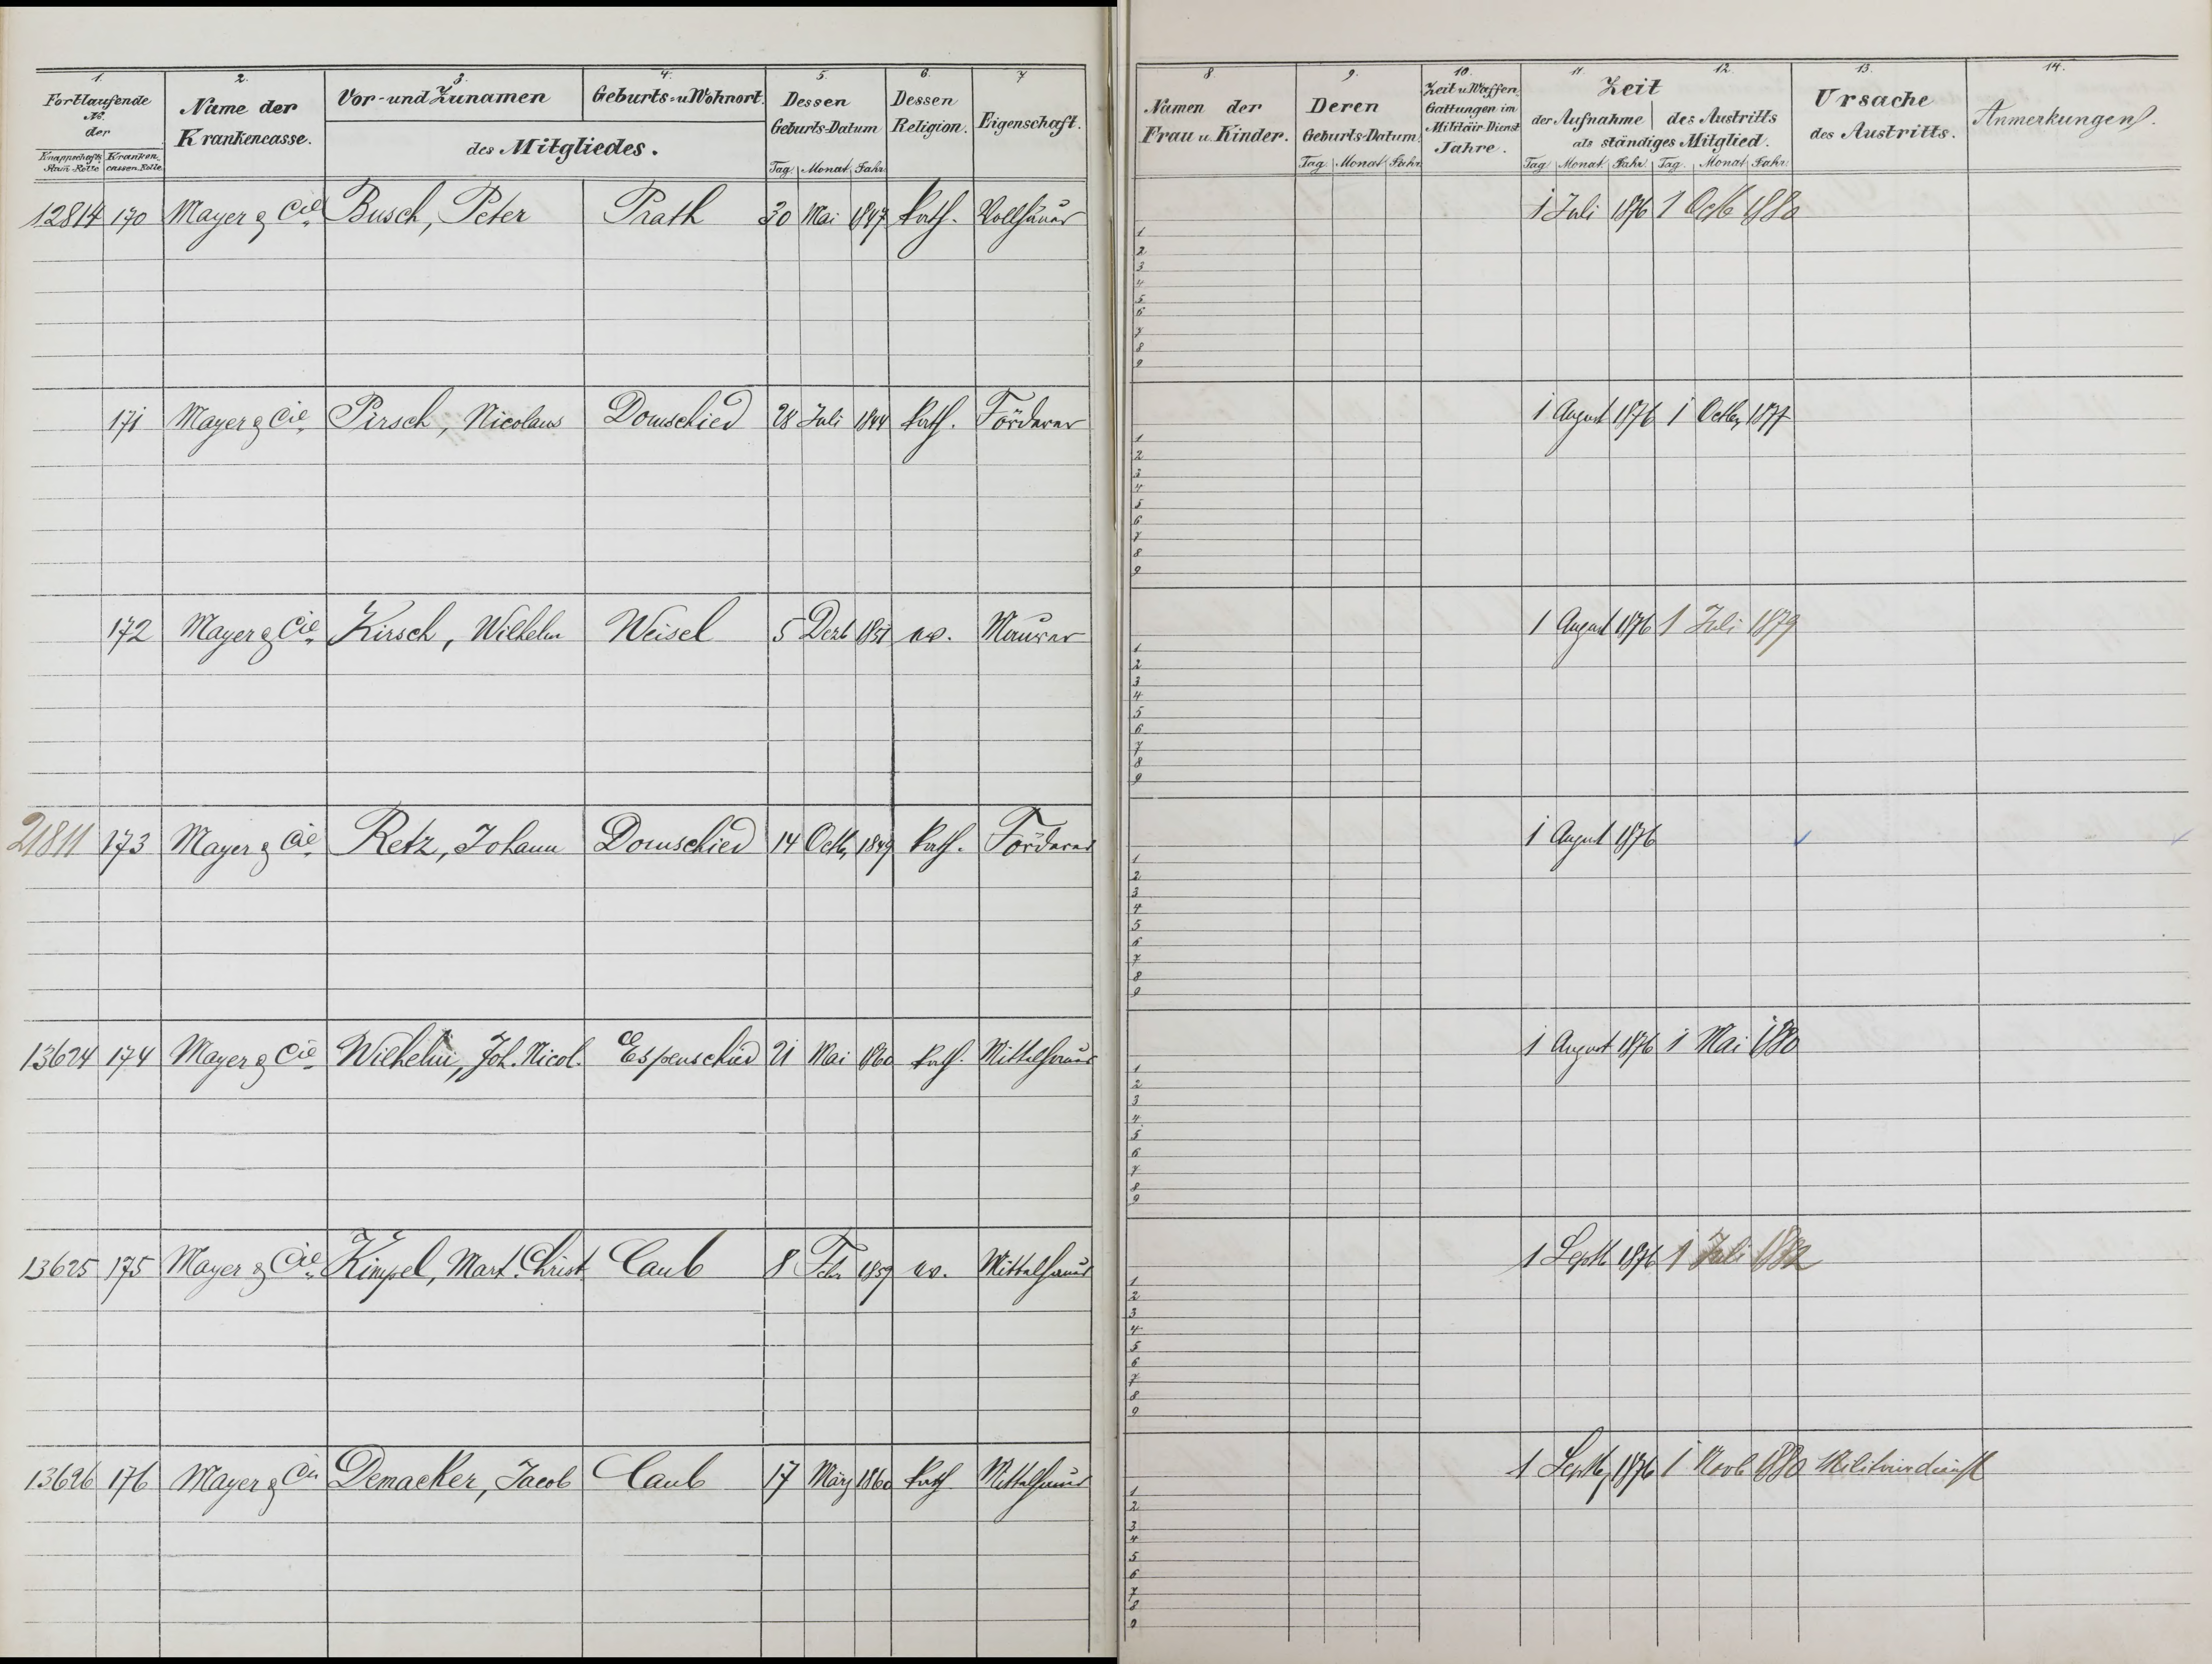 1. 2. 3. 4. 5. 6. 7
Fortlaufende No. der
Knappschafts Stam-Rolle Kranken cassen Rolle
Name der Krankencasse.
Vor- und Zunamen Geburts- u. Wohnort.
des Mitgliedes.
Dessen Geburts-Datum
Tag. Monat. Jahr.
Dessen Religion.
Eigenschaft.
12814 170 Mayer & Cie. Busch, Peter Prath 30 Mai 1847 kath. Vollhauer
171 Mayer & Cie. Pirsch, Nicolaus Domschied 28 Juli 1844 kath. Förderer
172 Mayer & Cie. Kirsch, Wilhelm Weisel 5 Dezb 1851 ev. Maurer
21811 173 Mayer & Cie. Retz, Johann Domschied 14 Octb. 1849 kath. Förderer
13624 174 Mayer & Cie Wilhelmi, Joh. Nicol. Espenschied 21 Mai 1860 kath. Mittelhauer
13625 175 Mayer & Cie. Kimpel, Mart. Christ Caub 8 Febr 1859 ev. Mittelhauer
13626 176 Mayer & Cie Demacker, Jacob Caub 17 März 1860 kath Mittelhauer
8. 9. 10. 11. 12. 13. 14.
Namen der Frau u. Kinder.
Deren Geburts-Datum.
Tag. Monat Jahr.
Zeit u. Waffen Gattungen im Militair-Dienst Jahre.
Zeit
der Aufnahme des Austritts
als ständiges Mitglied.
Tag. Monat. Jahr. Tag. Monat. Jahr.
Ursache des Austritts.
Anmerkungen.
1 Juli 1876 1 Octb 1880
1
2
3
4
5
6
7
8
9
1 August 1876 1 Octbr 1877
1
2
3
4
5
6
7
8
9
1 August 1876 1 Juli 1879
1
2
3
4
5
6
7
8
9
1 August 1876
1
2
3
4
5
6
7
8
9
1 August 1876 1 Mai 1880
1
2
3
4
5
6
7
8
9
1 Septb 1876 1 Juli 1882
1
2
3
4
5
6
7
8
9
1 Septb 1876 1 Novb 1880 Militairdienst
1
2
3
4
5
6
7
8
9